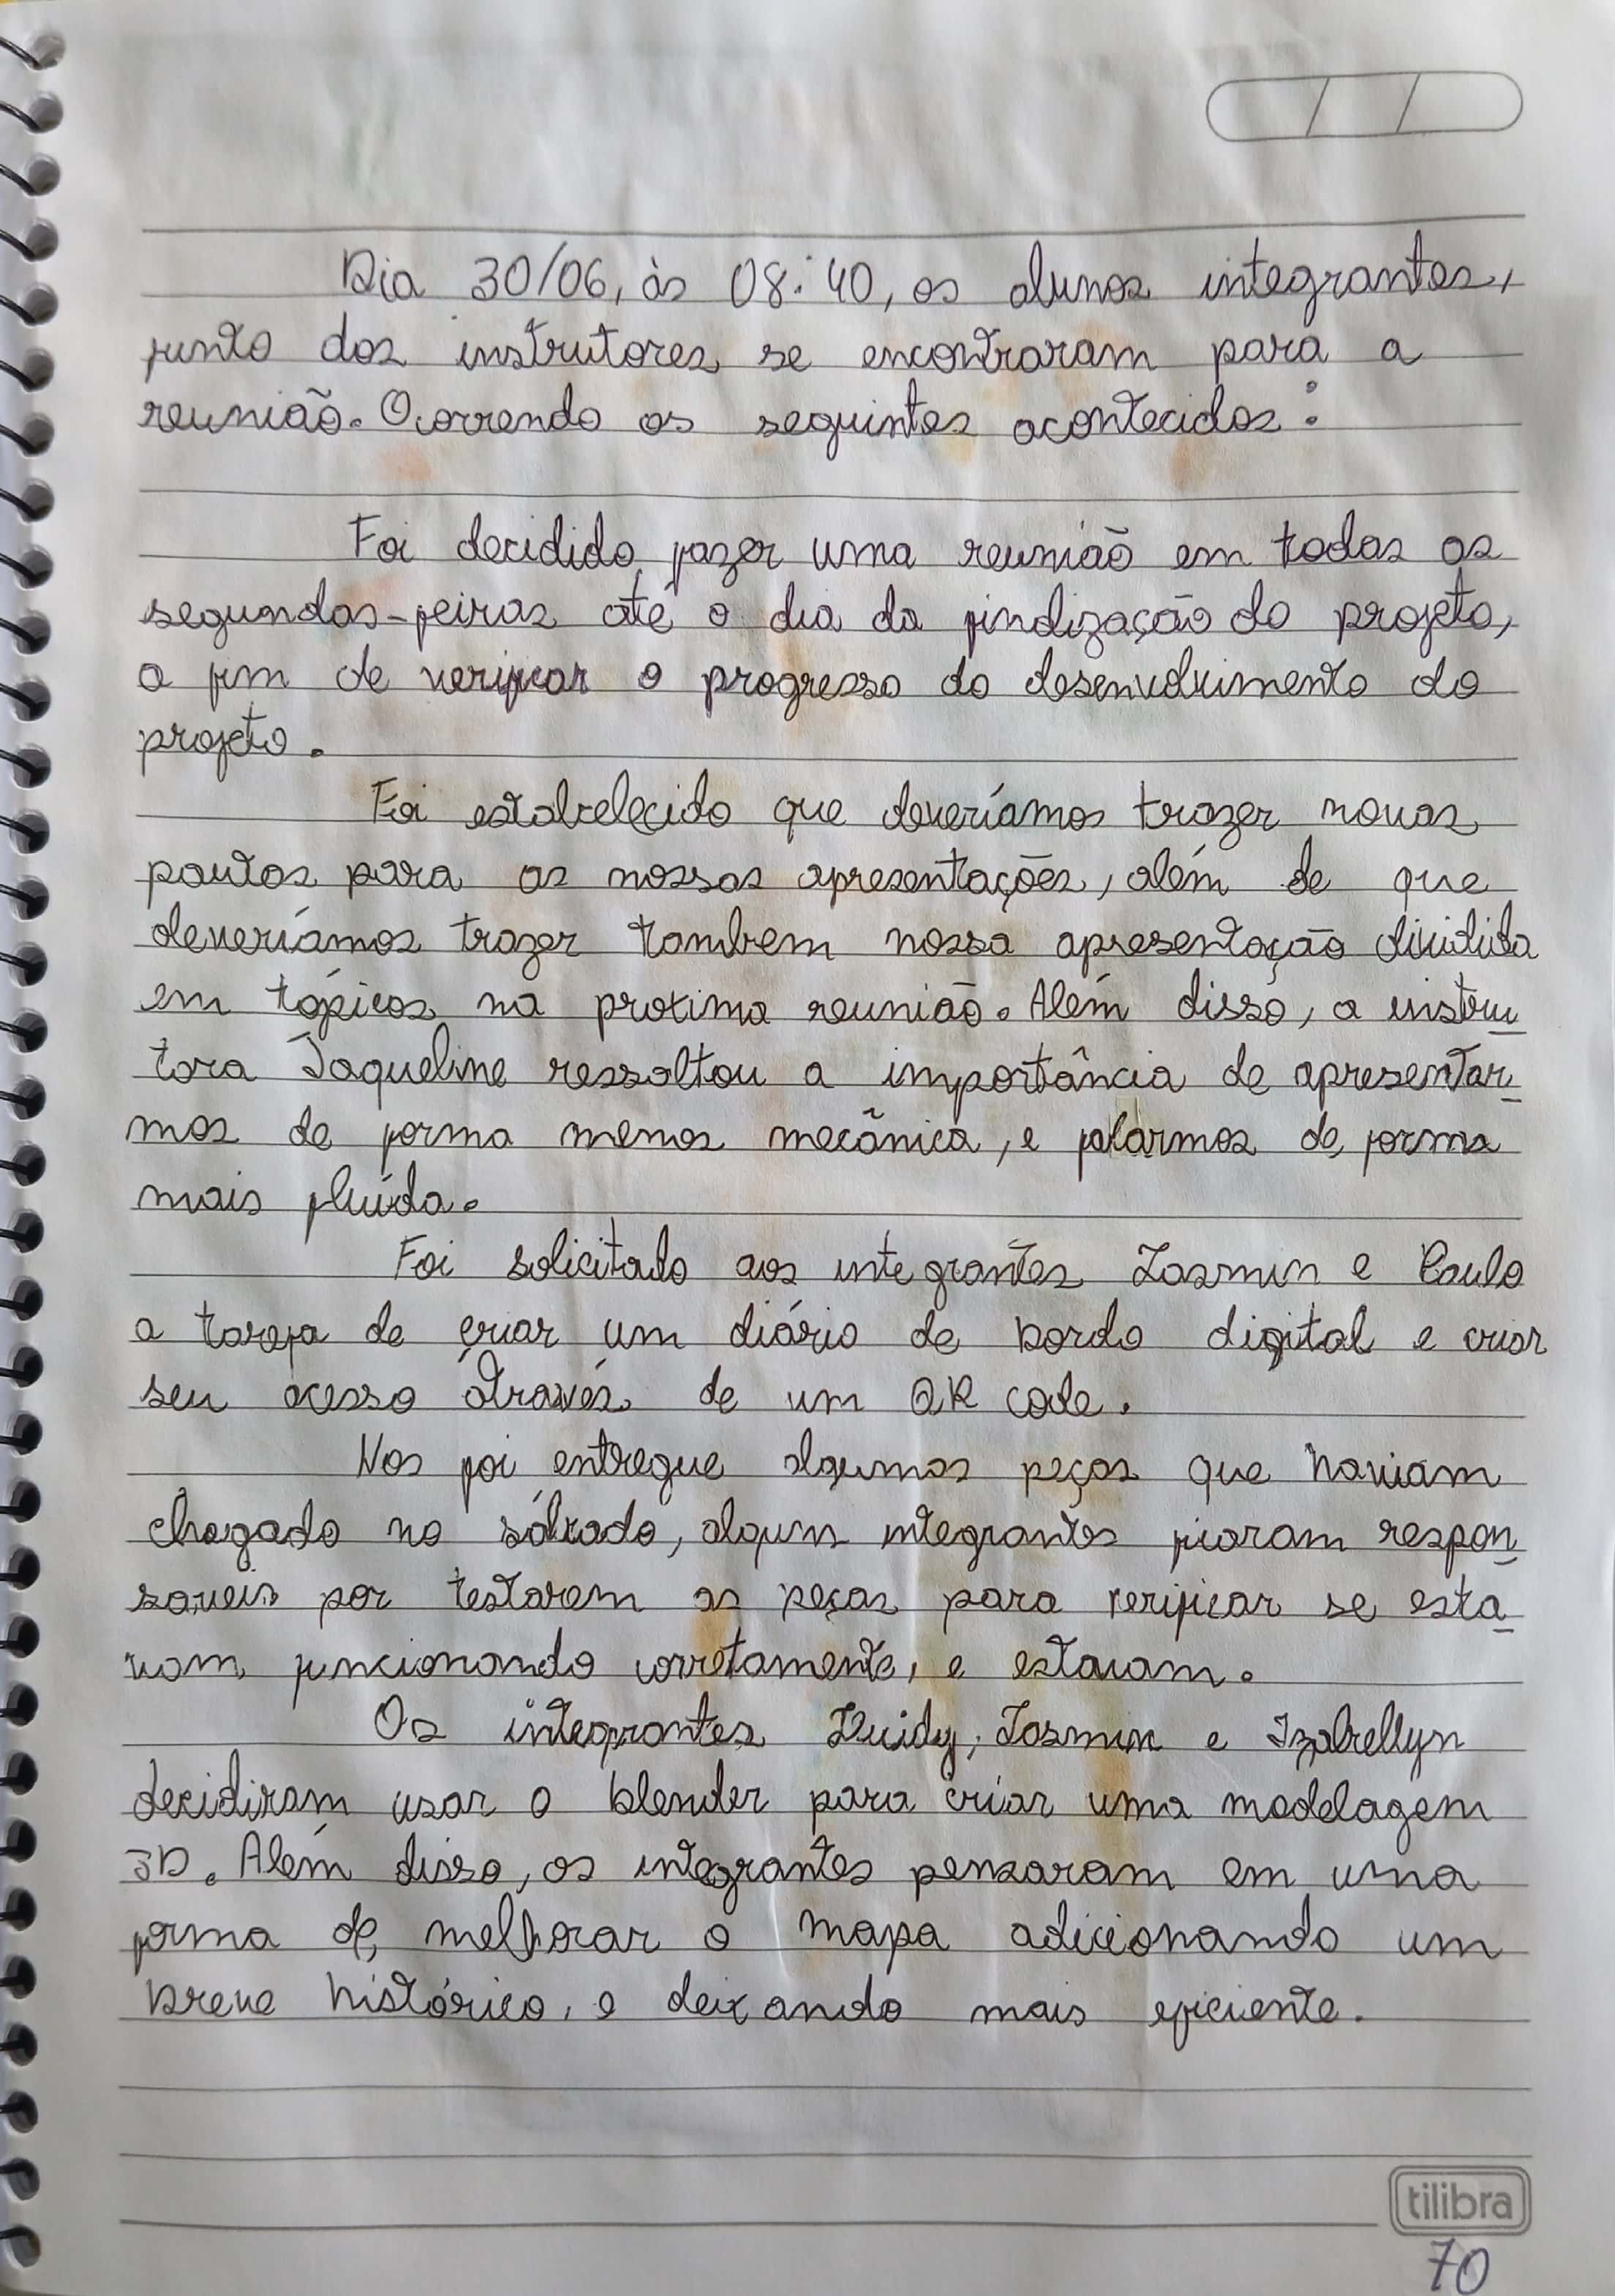 Dia 30/06, às 08:40, os alunos integrantes,
junto dos instrutores, se encontraram para a
reunião. Ocorrendo os seguintes acontecidos:
Foi decidido fazer uma reunião em todas as
segundas-feiras até o dia da finalização do projeto,
a fim de verificar o progresso do desenvolvimento do
projeto.
Foi estabelecido que deveríamos trazer novas
pautas para as nossas apresentações, além de que
deveríamos trazer tambem nossa apresentação dividida
em tópicos na proxima reunião. Além disso, a instru
tora Jaqueline ressaltou a importância de apresentar
mos de forma menos mecânica, e falarmos de forma
mais fluída.
Foi solicitado aos integrantes Iasmin e Paulo
a tarefa de criar um diário de bordo digital e criar
seu acesso através de um QR code.
Nos foi entregue algumas peças que haviam
chegado no sábado, alguns integrantes ficaram respon
saveis por testarem as peças para verificar se esta
vam funcionando corretamente, e estavam.
Os integrantes Iasmin e Izabellyn
decidiram usar o blender para criar uma modelagem
3D. Além disso, os integrantes pensaram em uma
forma de melhorar o mapa adicionando um
breve histórico, e deixando mais eficiente.
tilibra
70